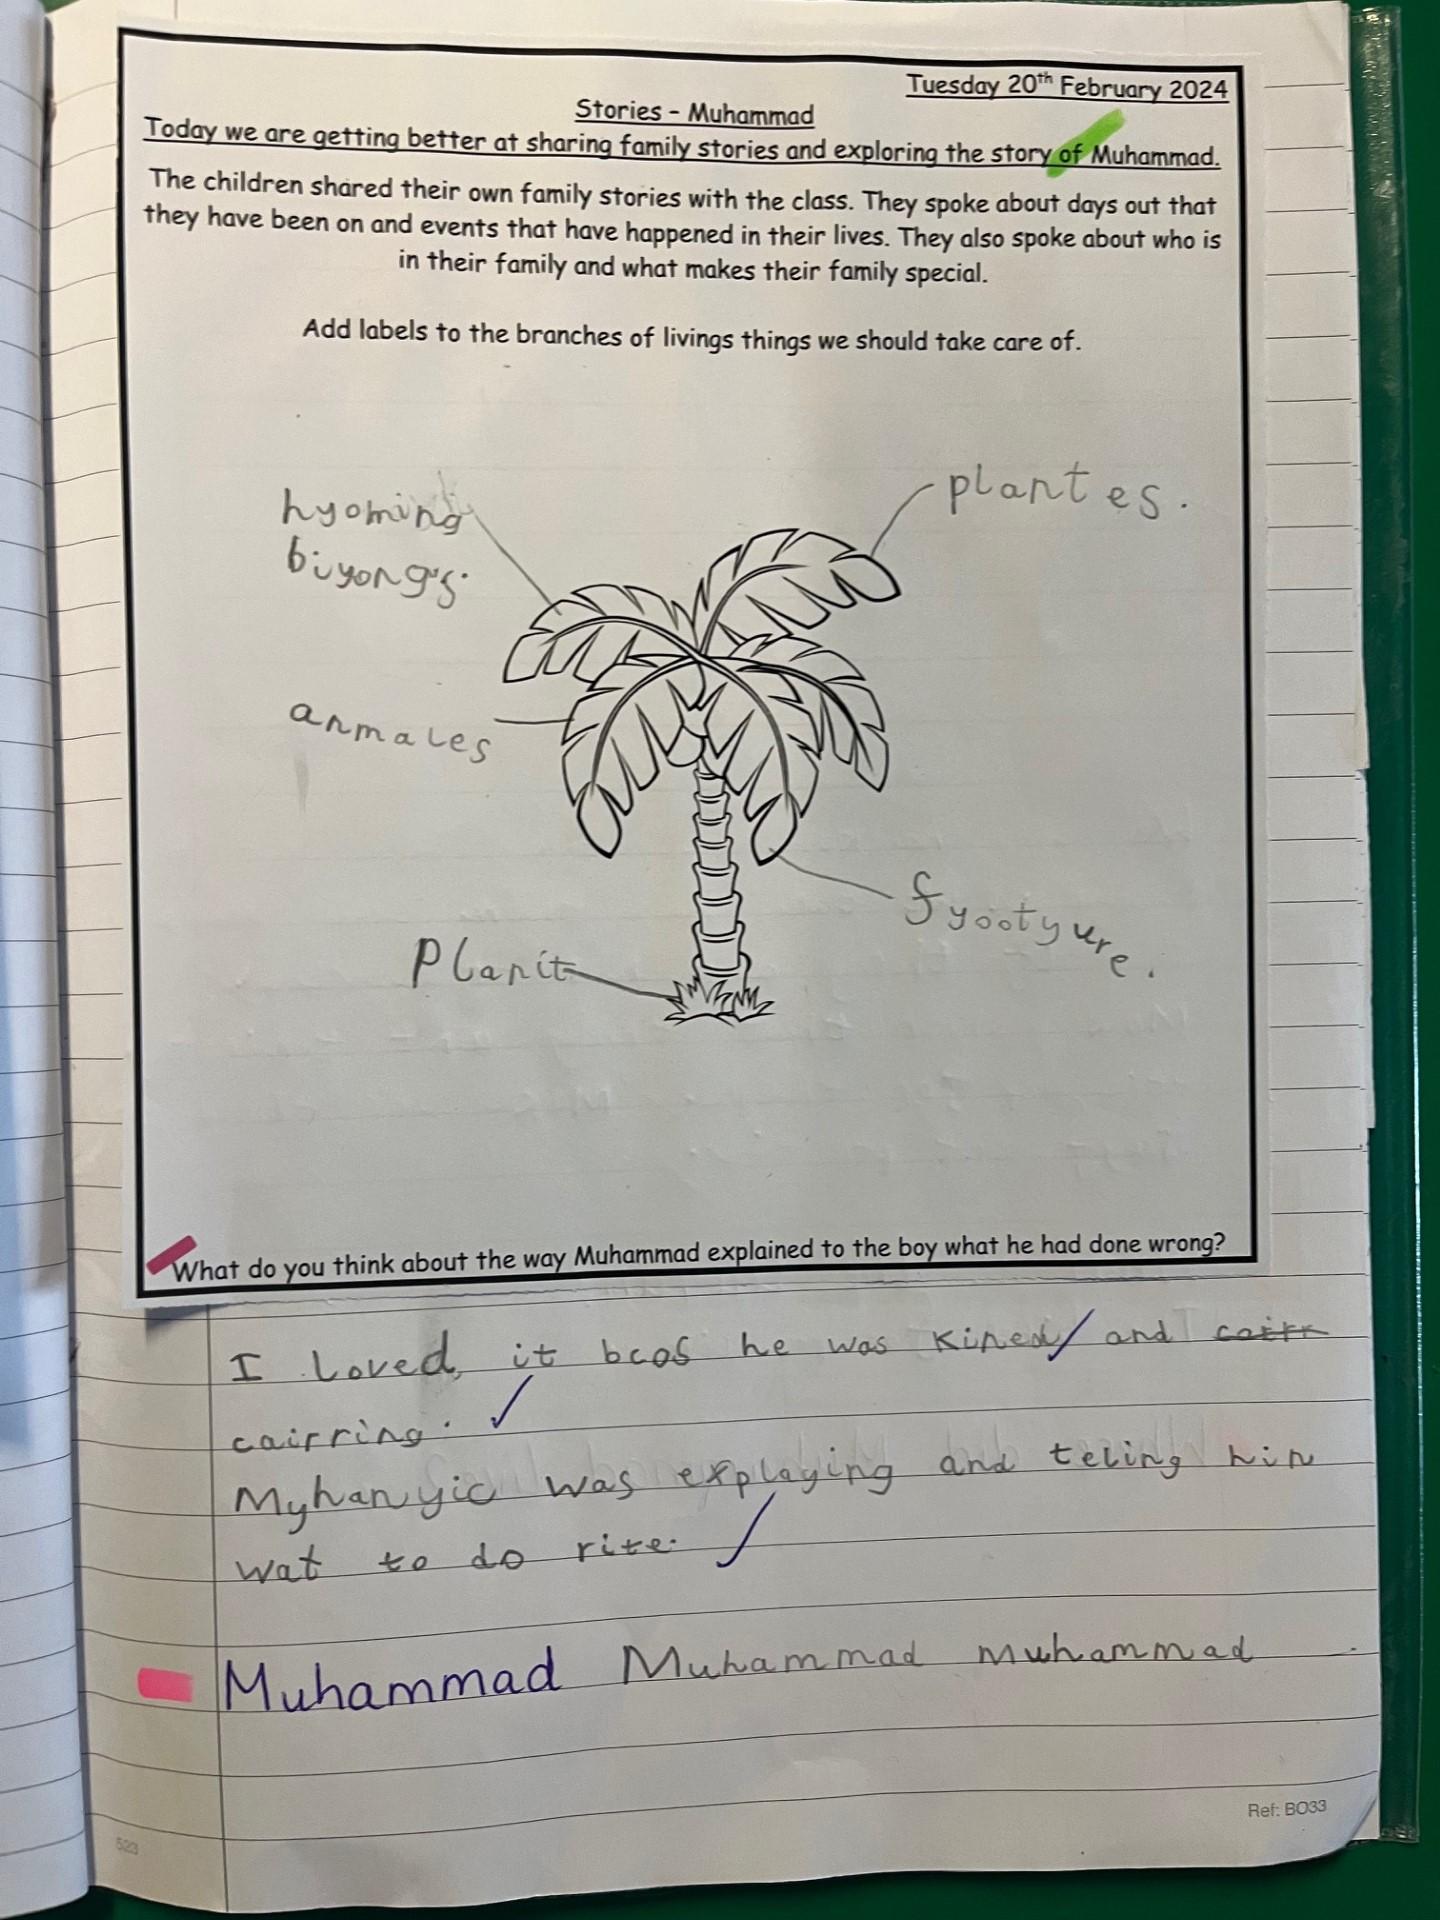 Tuesday 20th February 2024
Stories - Muhammad
Today we are getting better at sharing family stories and exploring the story of Muhammad.
The children shared their own family stories with the class. They spoke about days out that
they have been on and events that have happened in their lives. They also spoke about who is
in their family and what makes their family special.
Add labels to the branches of livings things we should take care of.
plantes.
hyoming
biyongs.
anmales
fyootyure.
Planit
What do you think about the way Muhammad explained to the boy what he had done wrong?
I Loved it bcos he was Kined and
cairring.
Myhanyic was explaying and teling hin
wat to do rite.
Muhammad Muhammad muhammad
Ref: BO33
523